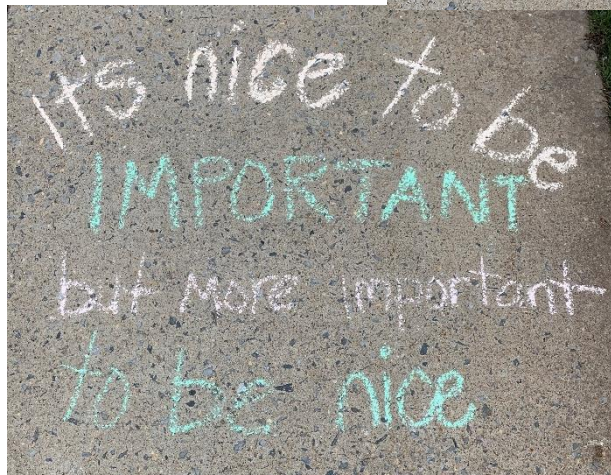 It's nice to be
IMPORTANT
but more important
to be nice